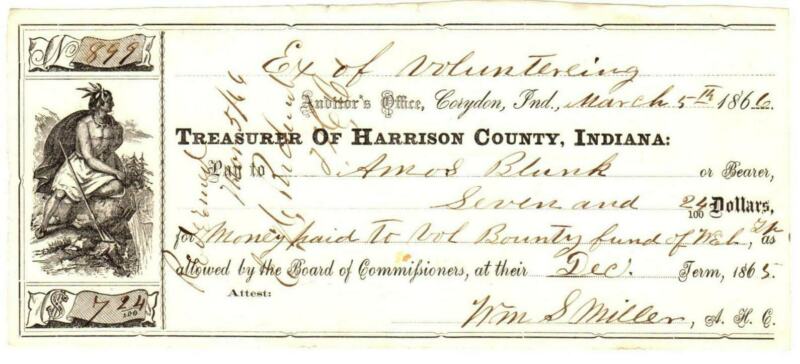 No. 899
Ex of Voluntering
Auditor's Office, Corydon, Ind., March 5th 1866.
TREASURER OF HARRISON COUNTY, INDIANA:
Pay to Amos Blunk or Bearer,
Seven and 24/100 Dollars,
for Money paid to Vol Bounty fund of Web, as
allowed by the Board of Commissioners, at their Dec. Term, 1865.
Attest:
Wm S Miller, A. H. C.
$ 7 24/100
Redeemed